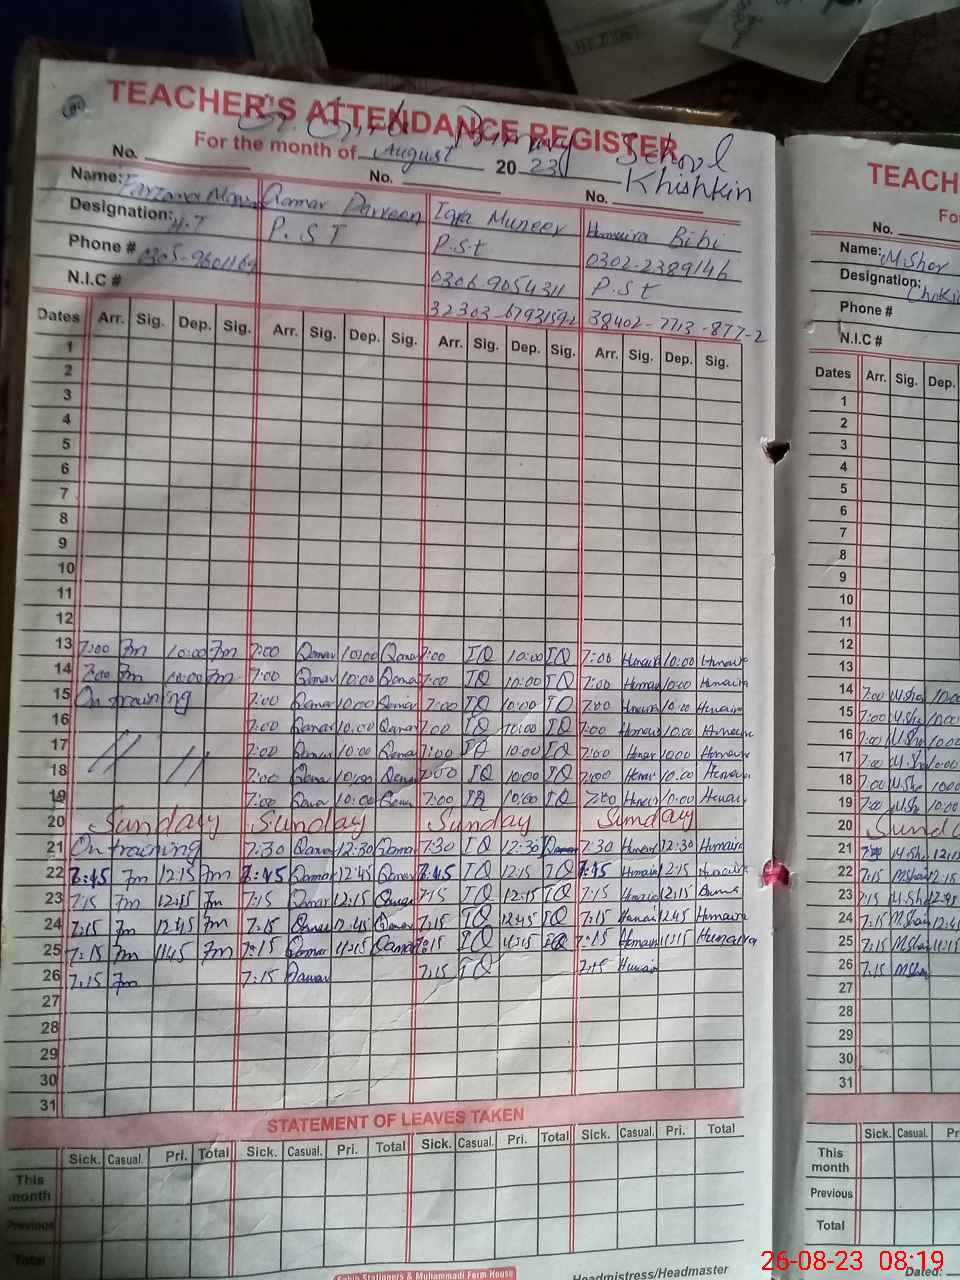 TEACHER'S ATTENDANCE REGISTER
G. Girls Primary School
Khishkin
For the month of August 2023
No. No. No.
Name: Farzana Qamar Parveen Iqra Muneer Humaira Bibi
Designation: P.S.T P.st 0302-2389146
Phone # 0305-9601169 0306-9054311 P.st
N.I.C # 38402-7713-877-2
Dates Arr. Sig. Dep. Sig. Arr. Sig. Dep. Sig. Arr. Sig. Dep. Sig. Arr. Sig. Dep. Sig.
1
2
3
4
5
6
7
8
9
10
11
12
13 7:00 7m 10:00 7m 7:00 Qamar 10:00 Qamar 7:00 IQ 10:00 IQ 7:00 Humaira 10:00 Humaira
14 7:00 7m 10:00 7m 7:00 Qamar 10:00 Qamar 7:00 IQ 10:00 IQ 7:00 Humaira 10:00 Humaira
15 On training 7:00 Qamar 10:00 Qamar 7:00 IQ 10:00 IQ 7:00 Humaira 10:00 Humaira
16 7:00 Qamar 10:00 Qamar 7:00 IQ 10:00 IQ 7:00 Humaira 10:00 Humaira
17 7:00 Qamar 10:00 Qamar 7:00 IQ 10:00 IQ 7:00 Humaira 10:00 Humaira
18 7:00 Qamar 10:00 Qamar 7:00 IQ 10:00 IQ 7:00 Humaira 10:00 Humaira
19 7:00 Qamar 10:00 Qamar 7:00 IQ 10:00 IQ 7:00 Humaira 10:00 Humaira
20 Sunday Sunday Sunday Sunday
21 On training 7:30 Qamar 12:30 Qamar 7:30 IQ 12:30 7:30 Humaira 12:30 Humaira
22 7m 12:15 7m Qamar 12:45 Qamar IQ 12:15 IQ Humaira 12:15 Humaira
23 7:15 7m 7m 7:15 Qamar 12:15 7:15 IQ 12:15 IQ 7:15 Humaira 12:15
24 7:15 7m 12:45 7m 7:15 Qamar 12:45 Qamar 7:15 IQ 12:45 IQ 7:15 Humaira 12:45 Humaira
25 7:15 7m 11:45 7m 7:15 Qamar 11:15 Qamar 7:15 IQ 11:15 IQ 7:15 Humaira 11:15 Humaira
26 7:15 7m 7:15 Qamar 7:15 IQ 7:15 Humaira
27
28
29
30
31
STATEMENT OF LEAVES TAKEN
Sick. Casual. Pri. Total Sick. Casual. Pri. Total Sick. Casual. Pri. Total Sick. Casual. Pri. Total
This month
Previous
Total
Stationers & Muhammadi Form House
Headmistress/Headmaster
TEACH
No.
Name: M.Sher
Designation:
Phone #
N.I.C #
Dates Arr. Sig. Dep.
1
2
3
4
5
6
7
8
9
10
11
12
13
14 7:00 M.Sher 10:00
15 7:00 M.Sher 10:00
16 7:00 M.Sher 10:00
17 7:00 M.Sher 10:00
18 7:00 M.Sher 10:00
19 7:00 M.Sher 10:00
20 Sund
21 M.Sher
22 7:15 M.Sher 12:15
23 7:15 M.Sher 12:45
24 7:15 M.Sher 12:4
25 7:15 M.Sher 11:15
26 7:15 M.Sher
27
28
29
30
31
Sick. Casual.
This month
Previous
Total
Dated:
26-08-23 08:19